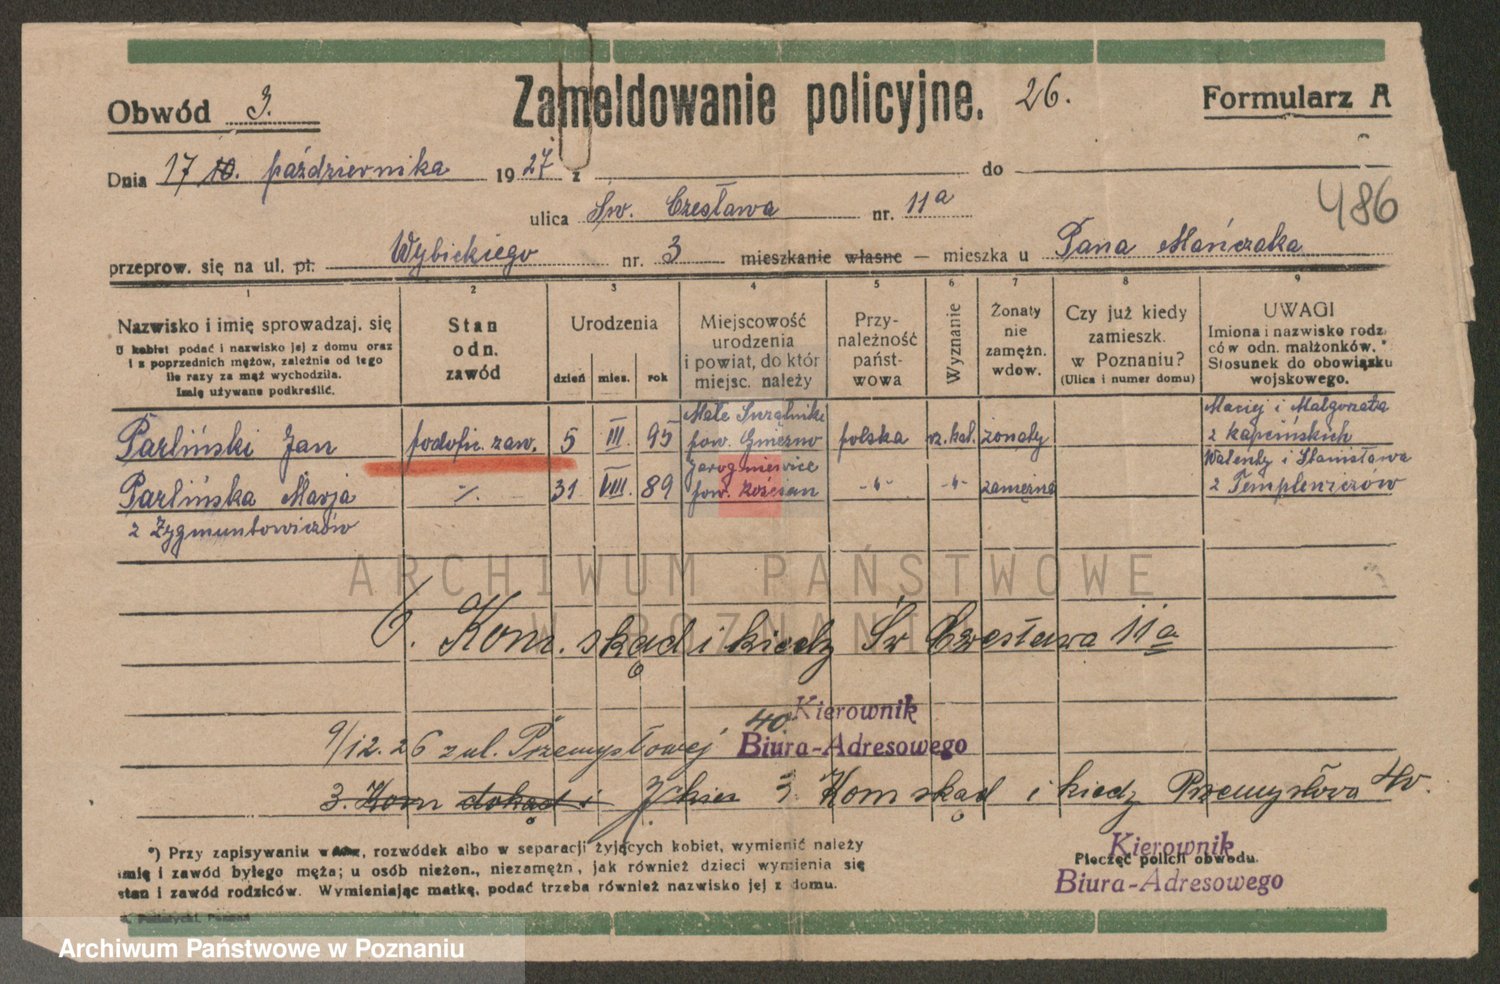 Zameldowanie policyjne. 26.
Obwód 3.
Formularz A
Dnia 17 10. października 1927 z do
ulica Św. Czesława nr. 11a
486
przeprow. się na ul. pl. Wybickiego nr. 3 mieszkanie własne — mieszka u Pana Mańczaka
1 2 3 4 5 6 7 8 9
Nazwisko i imię sprowadzaj. się
U kobiet podać i nazwisko jej z domu oraz
i z poprzednich mężów, zależnie od tego
ile razy za mąż wychodziła.
Imię używane podkreślić.
Stan
odn.
zawód
Urodzenia
dzień mies. rok
Miejscowość
urodzenia
i powiat, do któr
miejsc. należy
Przy-
należność
państ-
wowa
Wyznanie
Żonaty
nie
zamężn.
wdow.
Czy już kiedy
zamieszk.
w Poznaniu?
(Ulica i numer domu)
UWAGI
Imiona i nazwisko rodzi-
ców odn. małżonków.
Stosunek do obowiązku
wojskowego.
Parliński Jan podofic. zaw. 5 III. 95 Małe pow. Gniezno polska rz. kat. żonaty Maciej i Małgorzata z Kapcińskich
Parlińska Marja 31 VIII. 89 pow. Kościan zamężna Walenty i Stanisława z
z Zygmuntowiczów
ARCHIWUM PAŃSTWOWE
W POZNANIU
6. Kom. skąd i kiedy Św Czesława 11a
9/12.26 z ul. Przemysłowej 40.
Kierownik
Biura-Adresowego
3. Kom dokąd i 3 Kom skąd i kiedy Przemysłowa 40.
*) Przy zapisywaniu wdów, rozwódek albo w separacji żyjących kobiet, wymienić należy
imię i zawód byłego męża; u osób nieżon., niezamężn., jak również dzieci wymienia się
stan i zawód rodziców. Wymieniając matkę, podać trzeba również nazwisko jej z domu.
Pieczęć policji obwodu.
Kierownik
Biura-Adresowego
Archiwum Państwowe w Poznaniu